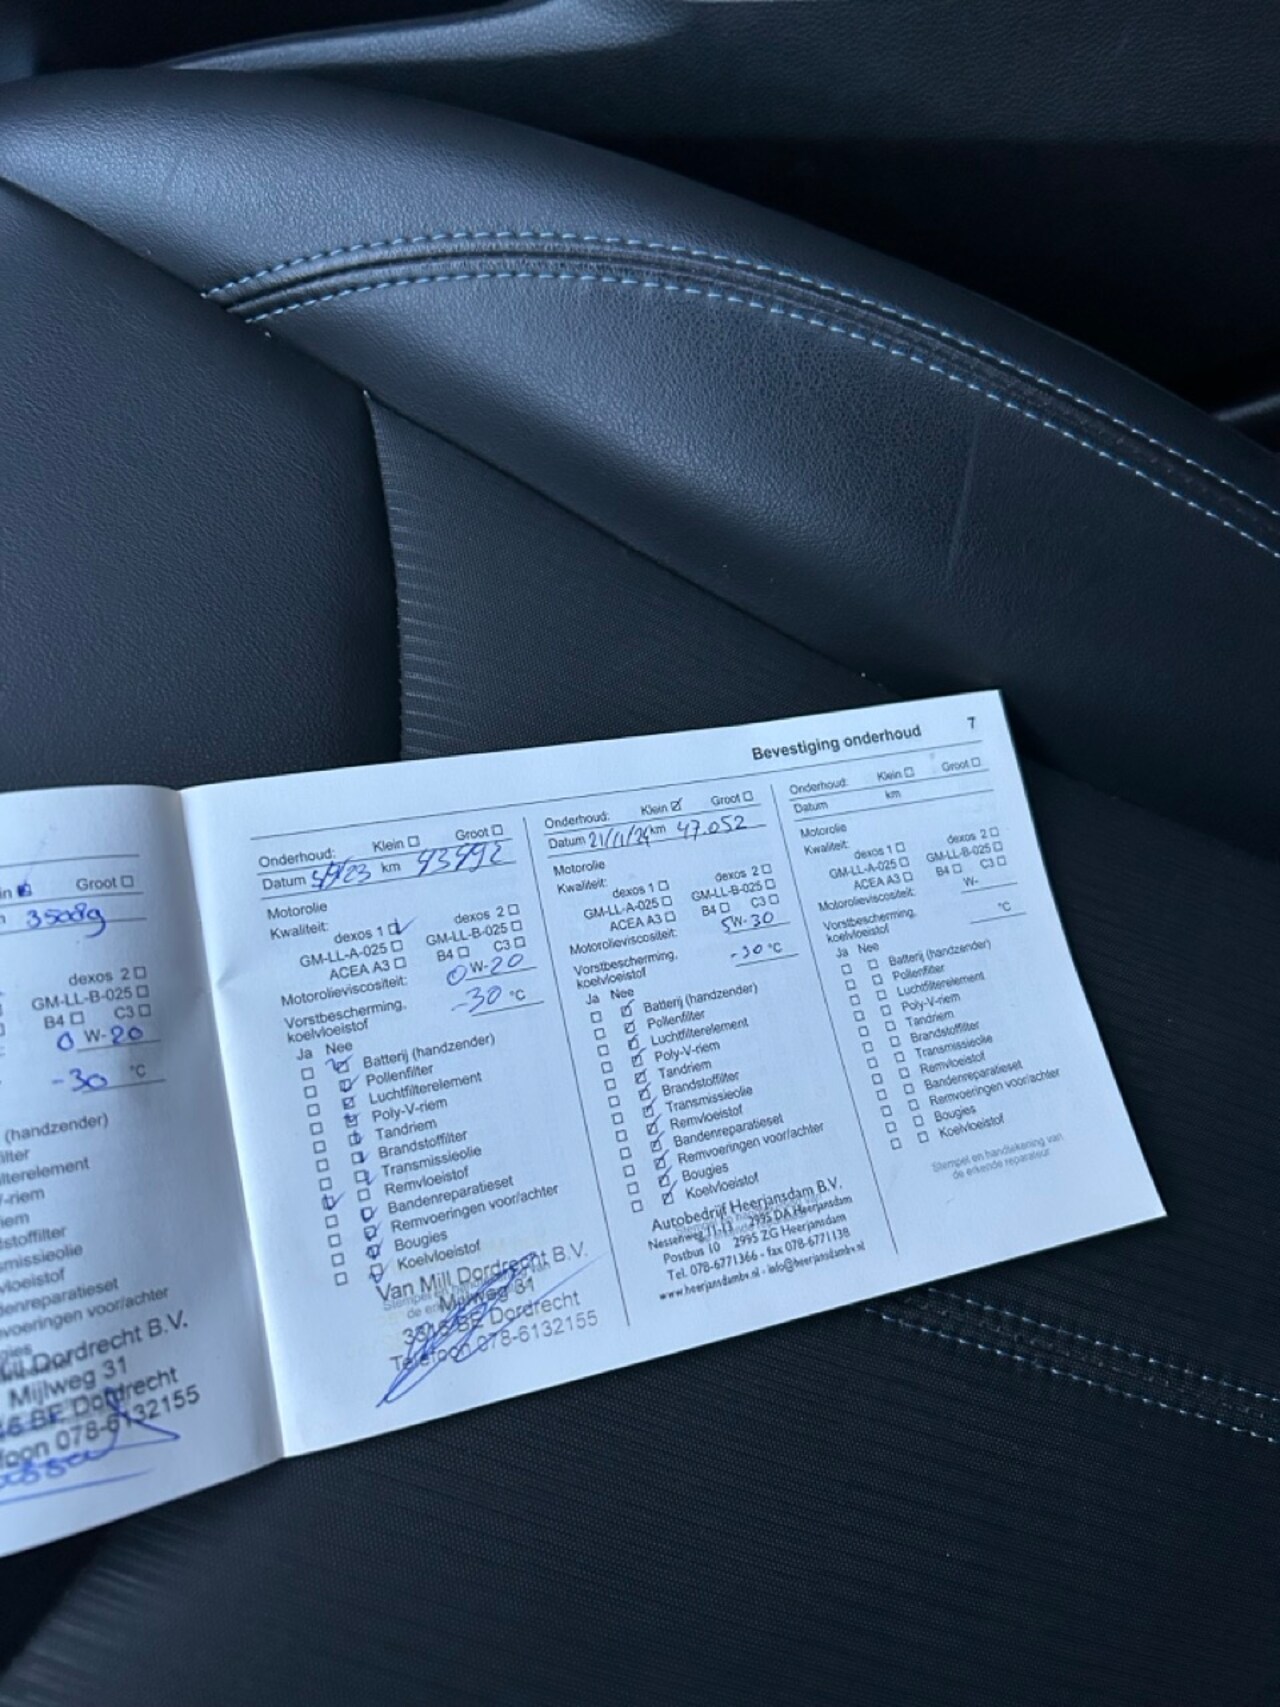 in Groot
35089
dexos 2
GM-LL-B-025
B4 C3
0 W-20
-30 °C
(handzender)
Dordrecht B.V.
Mijlweg 31
BE Dordrecht
foon 078-6132155
Bevestiging onderhoud 7
Onderhoud: Klein Groot
Datum km 43492
Motorolie
Kwaliteit: dexos 1 dexos 2
GM-LL-A-025 GM-LL-B-025
ACEA A3 B4 C3
Motorolieviscositeit: 0 W-20
Vorstbescherming, -30 °C
koelvloeistof
Ja Nee
Batterij (handzender)
Pollenfilter
Luchtfilterelement
Poly-V-riem
Tandriem
Brandstoffilter
Transmissieolie
Remvloeistof
Bandenreparatieset
Remvoeringen voor/achter
Bougies
Koelvloeistof
Van Mill Dordrecht B.V.
Mijlweg 31
BE Dordrecht
Telefoon 078-6132155
Onderhoud: Klein Groot
Datum 21/11/24 km 47.052
Motorolie
Kwaliteit: dexos 1 dexos 2
GM-LL-A-025 GM-LL-B-025
ACEA A3 B4 C3
Motorolieviscositeit: 5W-30
Vorstbescherming, -30 °C
koelvloeistof
Ja Nee
Batterij (handzender)
Pollenfilter
Luchtfilterelement
Poly-V-riem
Tandriem
Brandstoffilter
Transmissieolie
Remvloeistof
Bandenreparatieset
Remvoeringen voor/achter
Bougies
Koelvloeistof
Autobedrijf Heerjansdam B.V.
Nesseweg 11-13 2995 DA Heerjansdam
Postbus 10 2995 ZG Heerjansdam
Tel. 078-6771366 - fax 078-6771138
www.heerjansdambv.nl - info@heerjansdambv.nl
Onderhoud: Klein Groot
Datum km
Motorolie
Kwaliteit: dexos 1 dexos 2
GM-LL-A-025 GM-LL-B-025
ACEA A3 B4 C3
Motorolieviscositeit: W-
Vorstbescherming, °C
koelvloeistof
Ja Nee
Batterij (handzender)
Pollenfilter
Luchtfilterelement
Poly-V-riem
Tandriem
Brandstoffilter
Transmissieolie
Remvloeistof
Bandenreparatieset
Remvoeringen voor/achter
Bougies
Koelvloeistof
Stempel en handtekening van
de erkende reparateur